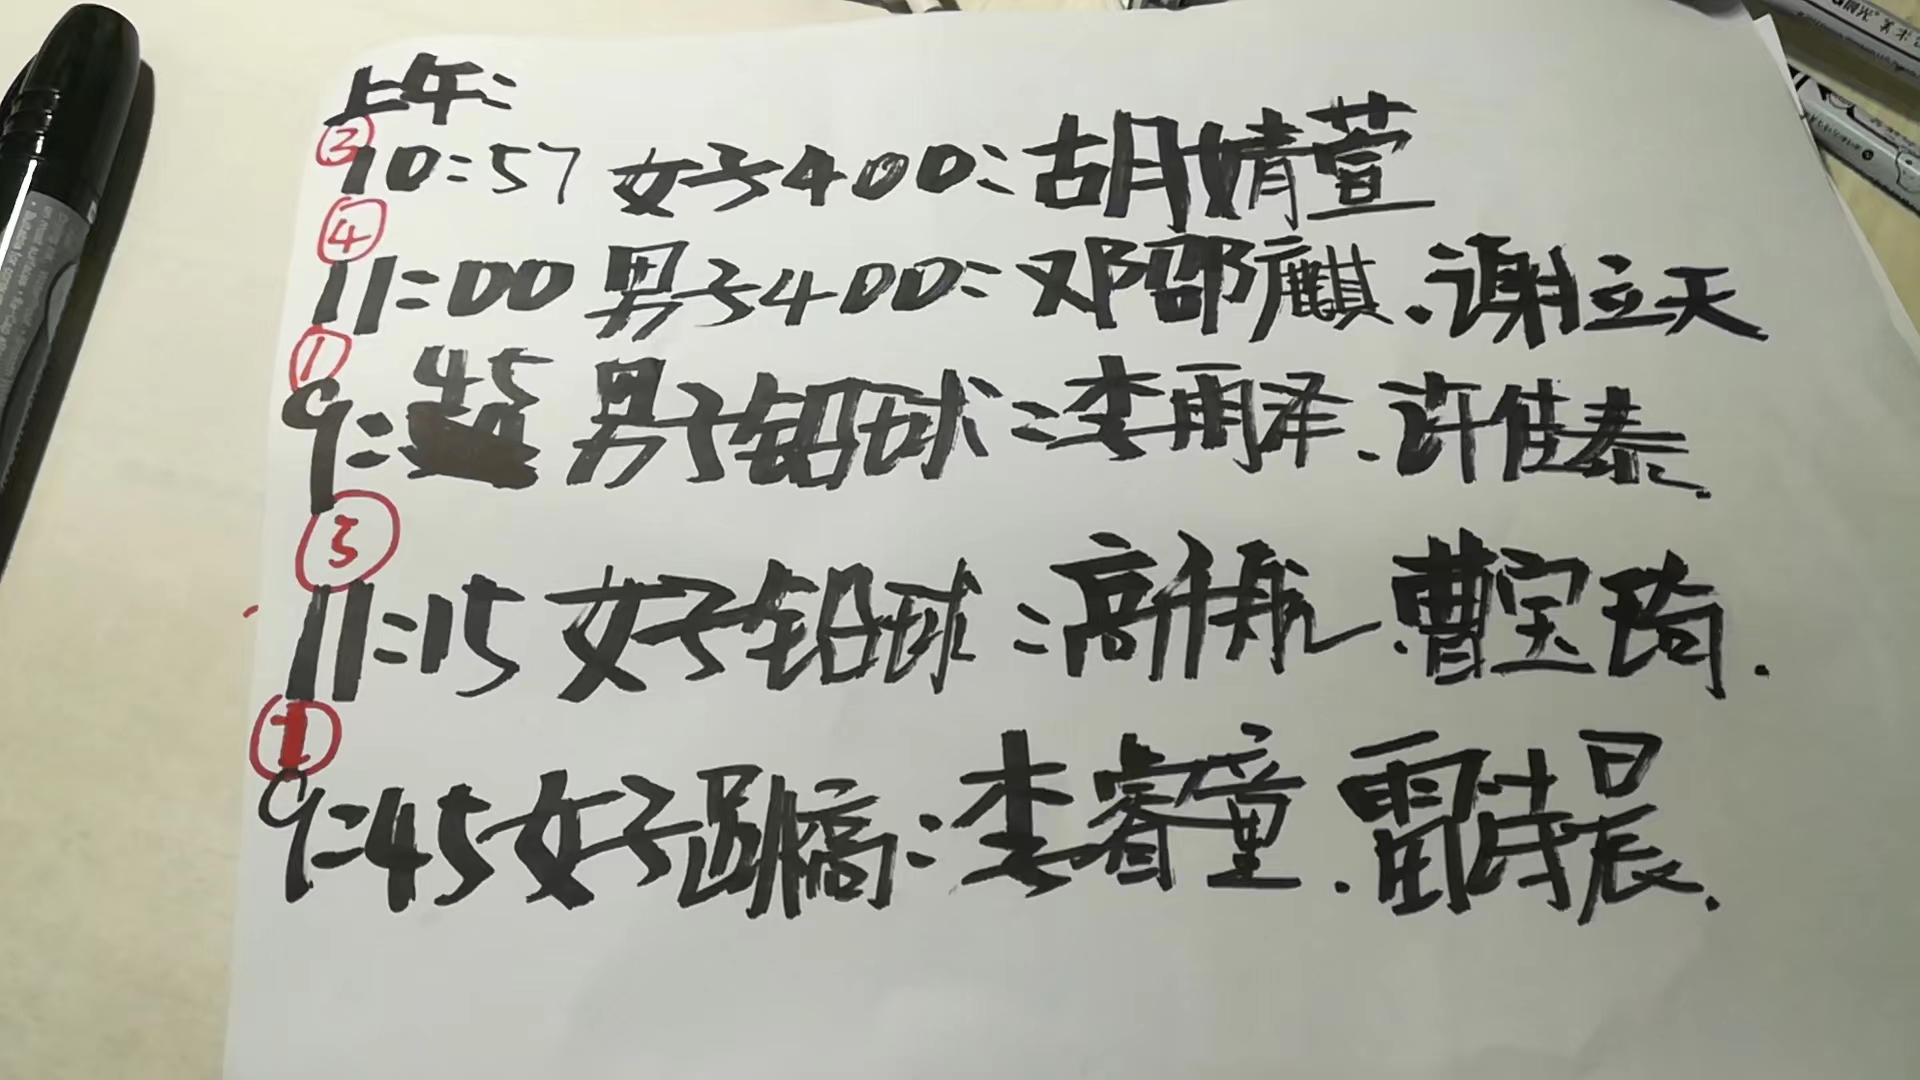 上午:
③
10:57 女子400:胡婧萱
④
11:00 男子400:邓邵麒.谢立天
①
9:45 男子铅球:李雨泽.许佳泰.
11:15 女子铅球:高千航.曹宝琦.
9:45女子跳高:李睿童.雷诗晨.